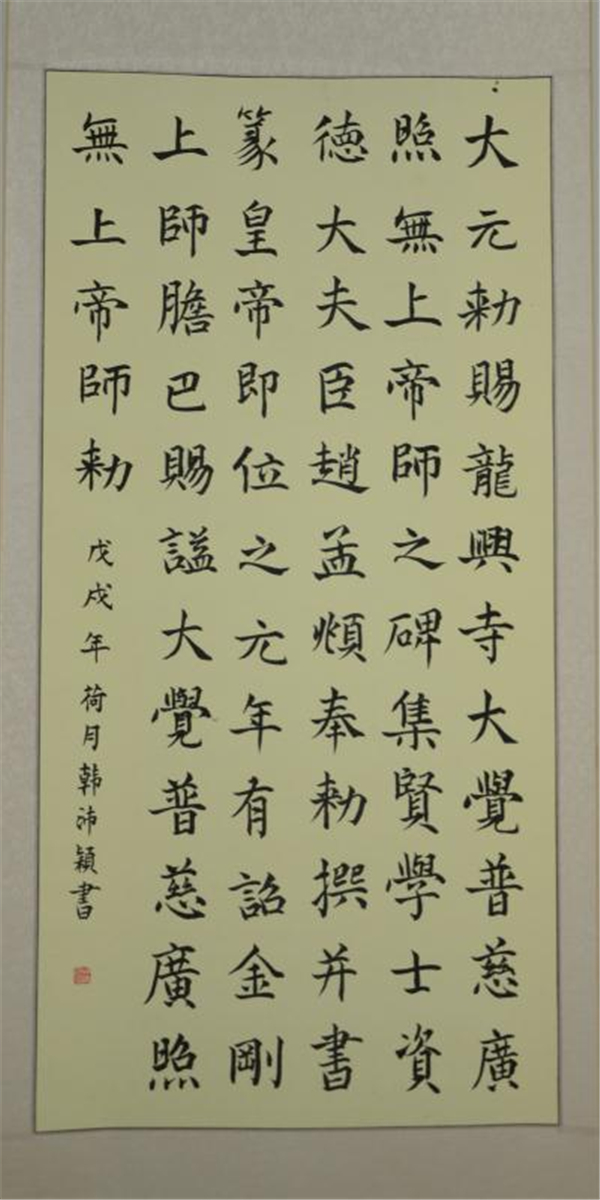 大元勑賜龍興寺大覺普慈廣
照無上帝師之碑集賢學士資
德大夫臣趙孟頫奉勑撰并書
篆皇帝即位之元年有詔金剛
上師膽巴賜謚大覺普慈廣照
無上帝師勑
戊戌年荷月韩沛颖書